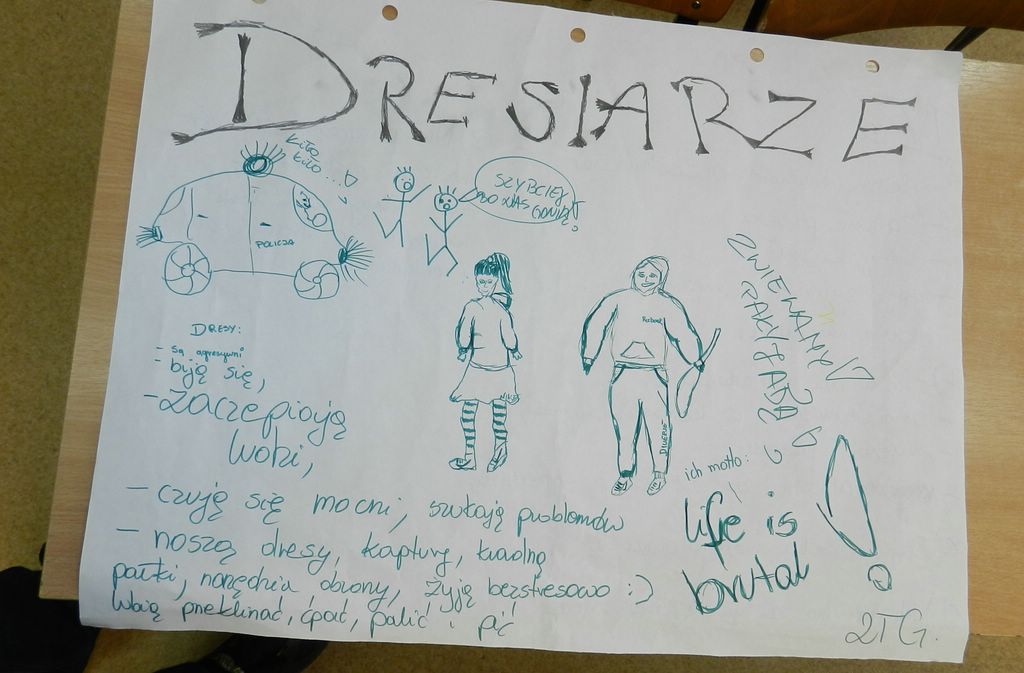 DRESIARZE
KIŁO
KIŁO...!
SZYBCIEJ
BO NAS GONIĄ!
POLICJA
ZWIEWAMY!
PAKUJ JARĄ!
DRESY:
- są agresywni
- biją się,
- zaczepiają
ludzi,
- czują się mocni, szukają problemów
- noszą dresy, kaptury, kradną
pałki, narzędzia obrony, żyją bezstresowo :)
lubią przeklinać, ćpać, palić i pić
NIKE
DIVERSE
ich motto:
life is
brutal!
2TG.